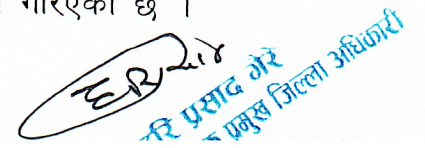 गरिएको छ ।
हरि प्रसाद गैरे
प्रमुख जिल्ला अधिकारी